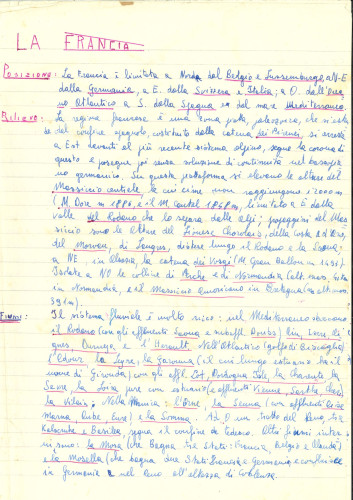 LA FRANCIA
POSIZIONE: La Francia è limitata a Nord dal Belgio e Lussemburgo, a N-E
dalla Germania, a E. dalla Svizzera e Italia; a O. dall'Ocea
no Atlantico a S. dalla Spagna e dal mare Mediterraneo.
RILIEVO: La regione francese è una zona
del confine spagnolo, costituito dalla catena dei Pirenei, si arresta
a Est davanti al più recente sistema alpino, segue la corona di
questo e prosegue poi senza soluzione di continuità nel
no germanico. Su questa piattaforma, si elevano le alture del
Massiccio centrale le cui cime non raggiungono i 2000 m
(M. Dore m 1886 e il M. Cantal 1858 m), limitato a E dalla
valle del Rodano che lo separa dalle alpi; propaggini del Mas
siccio sono le alture del
del Morvan, di Langres, distese lungo il Rodano e la Saona
a NE, in Alsazia, la catena dei Vosgi (M. Gran Ballon m. 1431)
Isolate a NO le colline di Perche e di Normandia (alt. max.
in Normandia, e il Massiccio Armoricano in Bretagna (alt. max.
391 m).
FIUMI: Il sistema fluviale è molto ricco: nel Mediterraneo sboccano
il Rodano (con gli affluenti Saona e Doubs,
e l'Herault. Nell'Atlantico (golfo di Biscaglia)
la Garonna (il cui lungo estuario ha il
nome di Gironda) con gli aff. Lot, Dordogna, la Charente, la
Sevre, la Loira pure con estuario (affluenti Vienne, Sarthe, Cher)
la Vilaine. Nella Manica: l'Orne, la Senna (con affluenti Oise
Marna, Aube, Eure) e la Somma. Ad O un tratto del Reno, tra
e Basilea segna il confine
sono: la Mosa (che bagna tre Stati: Francia, Belgio e Olanda)
e la Mosella (che bagna due Stati Francia e Germania, e confluisce
in Germania nel Reno all'altezza di Coblenza.